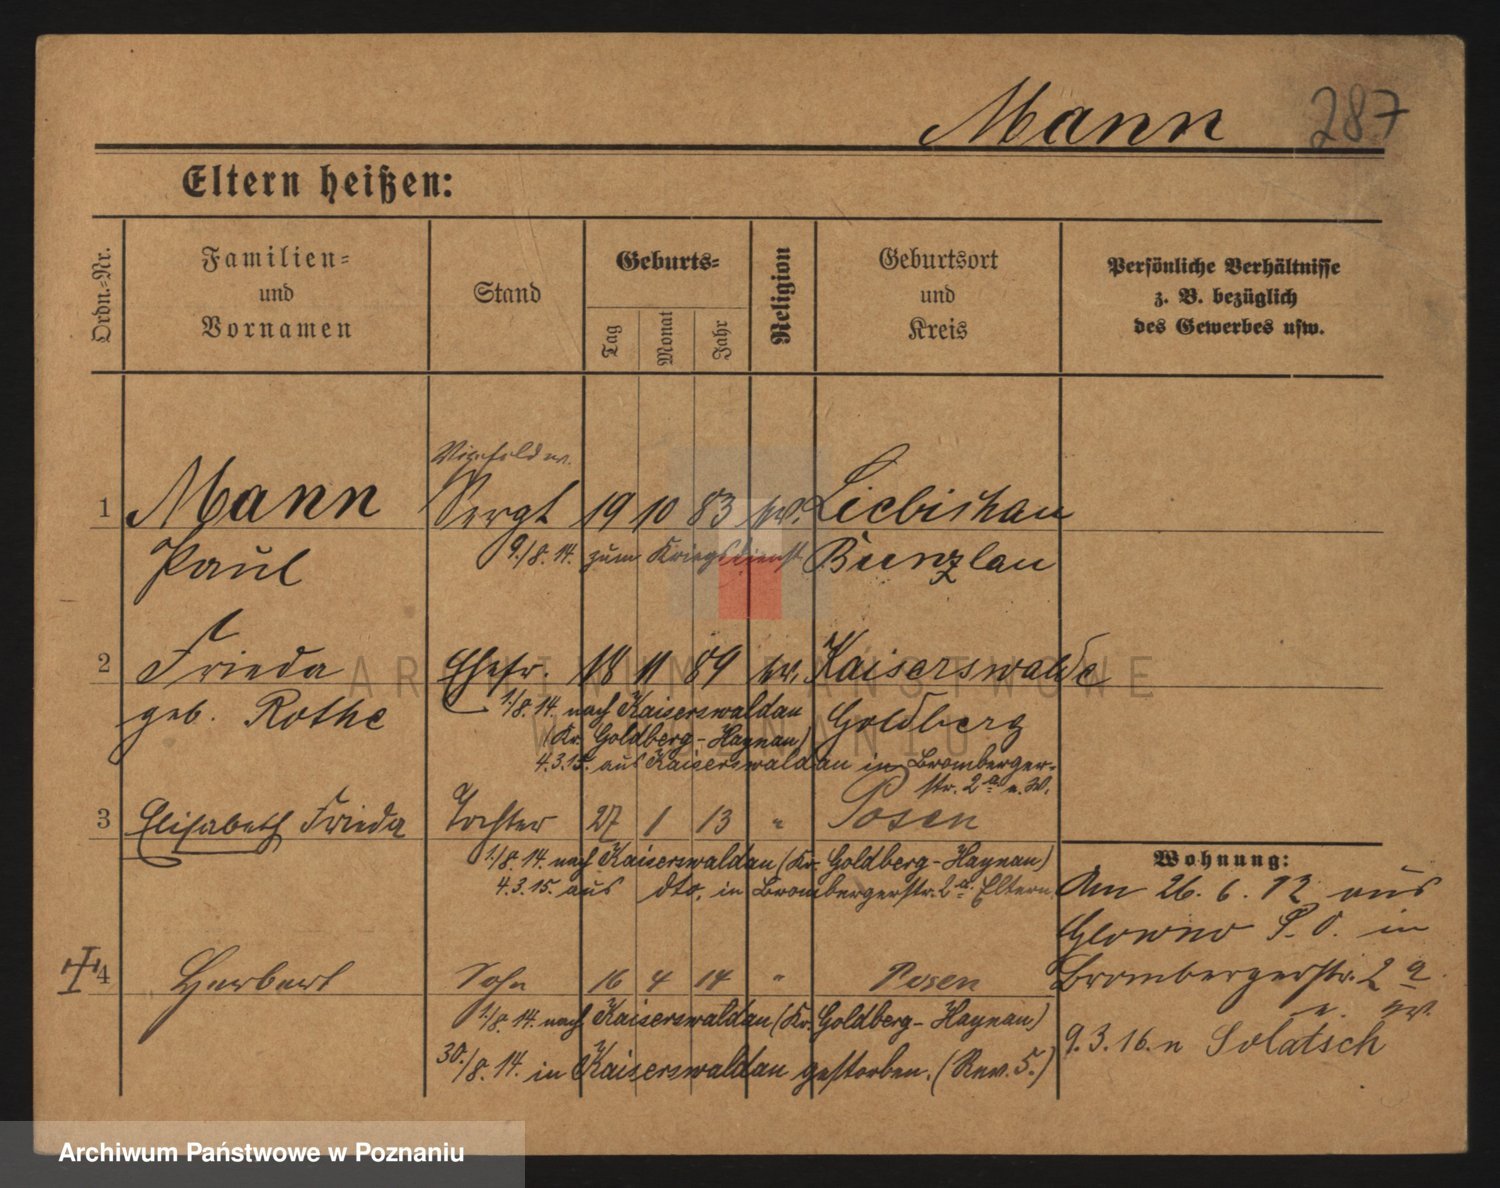 Mann 287
Eltern heißen:
Ordn.-Nr.
Familien-
und
Vornamen
Stand
Geburts-
Tag
Monat
Jahr
Religion
Geburtsort
und
Kreis
Persönliche Verhältnisse
z. B. bezüglich
des Gewerbes usw.
Vizefeldw.
1 Mann Sergt 19 10 83 ev. Liebichau
Paul 9./8. 14. zum Kriegsdienst Bunzlau
2 Frieda Ehefr. 18 11 89 ev. Kaiserswalde
geb. Rothe 1./8. 14. nach Kaiserswaldau Goldberg
(Kr. Goldberg-Haynau)
4.3.15. aus Kaiserswaldau in Bromberger-
str. 2a e. W.
3 Elisabeth Frieda Tochter 27 1 13 " Posen
1./8. 14. nach Kaiserswaldau (Kr. Goldberg-Haynau)
4.3.15. aus dto. in Brombergerstr. 2a. Eltern
4 Herbert Sohn 16 4 14 " Posen
1./8. 14. nach Kaiserswaldau (Kr. Goldberg-Haynau)
30./8. 14. in Kaiserswaldau gestorben. (Rev. 5.)
Wohnung:
Am 26. 6. 12 aus
Glowno P. O. in
Brombergerstr. 2a.
e. W.
9. 3. 16. n Solatsch
ARCHIWUM PAŃSTWOWE
W POZNANIU
Archiwum Państwowe w Poznaniu